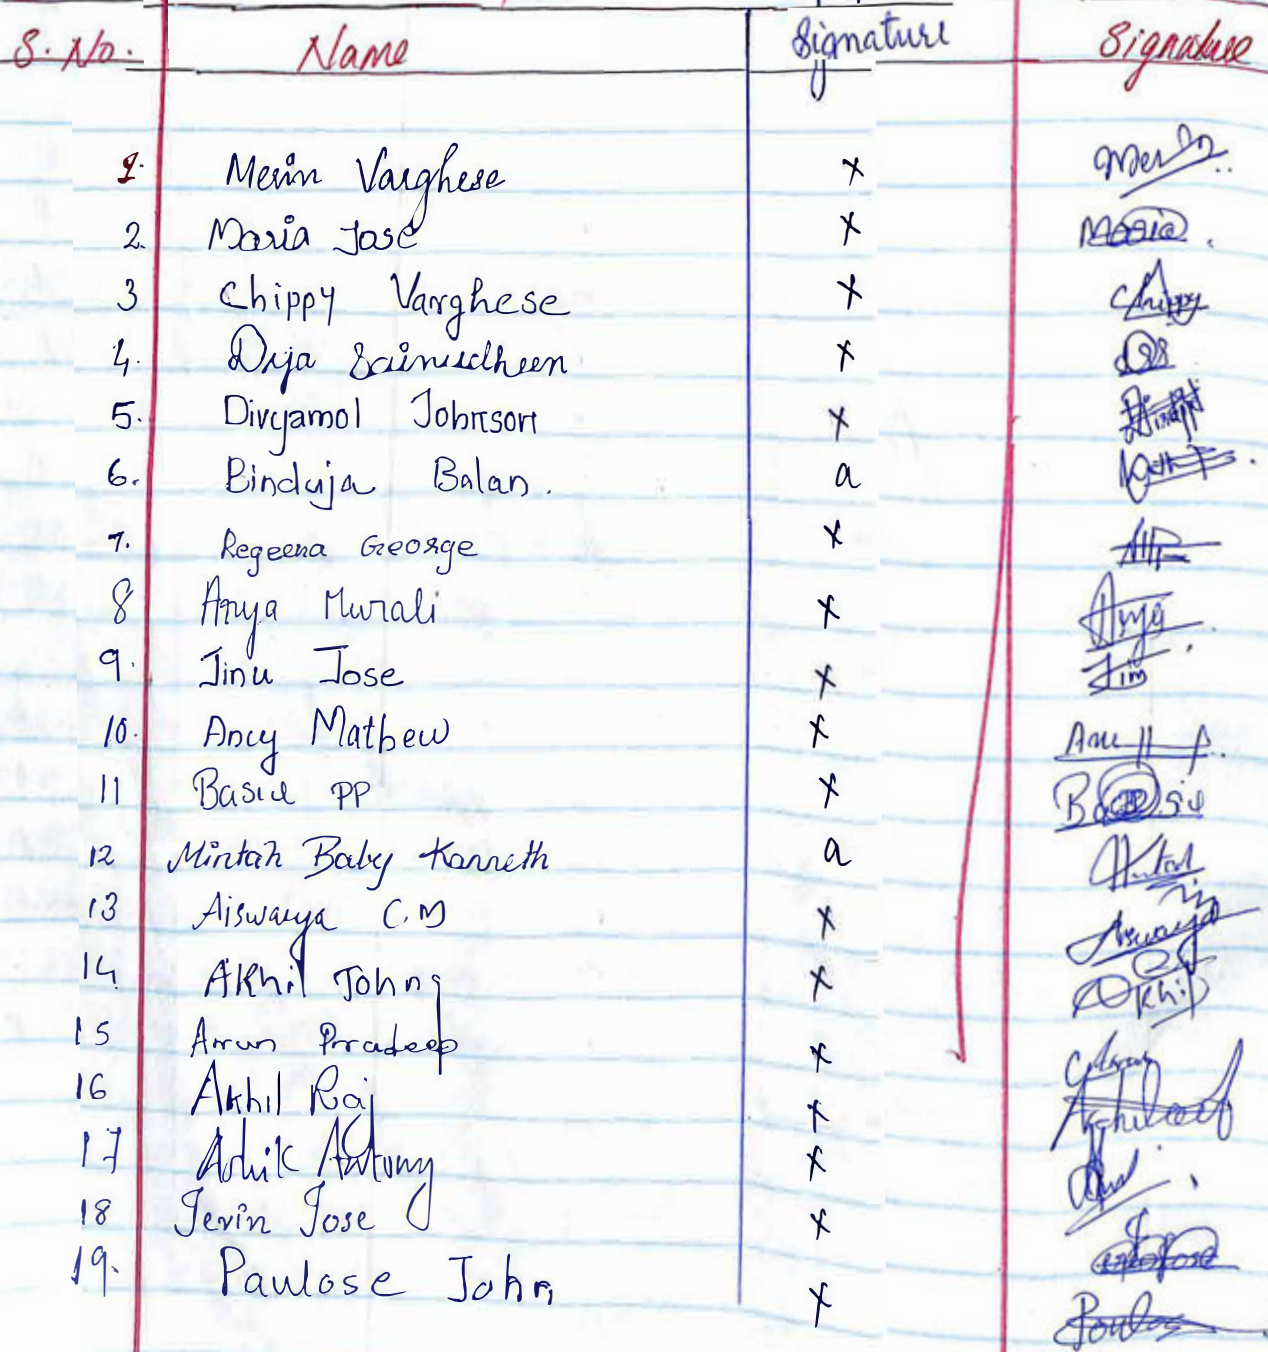 S. No. Name Signature Signature
1. Merin Varghese x
2. Maria Jose x Maria
3 Chippy Varghese x Chippy
4. Dija Sainudheen x
5. Divyamol Johnson x
6. Binduja Balan. a
7. Regeena George x
8 Arya Murali x Arya
9. Jinu Jose x
10. Ancy Mathew x
11 Basil PP x Basil
12 Mintah Baby Kanneth a
13 Aiswarya C.M x Aswarya
14 Akhil Johnj x Akhil
15 Arun Pradeep x
16 Akhil Raj x
17 Ashik Antony x
18 Jerin Jose x
19. Paulose John x Poulos